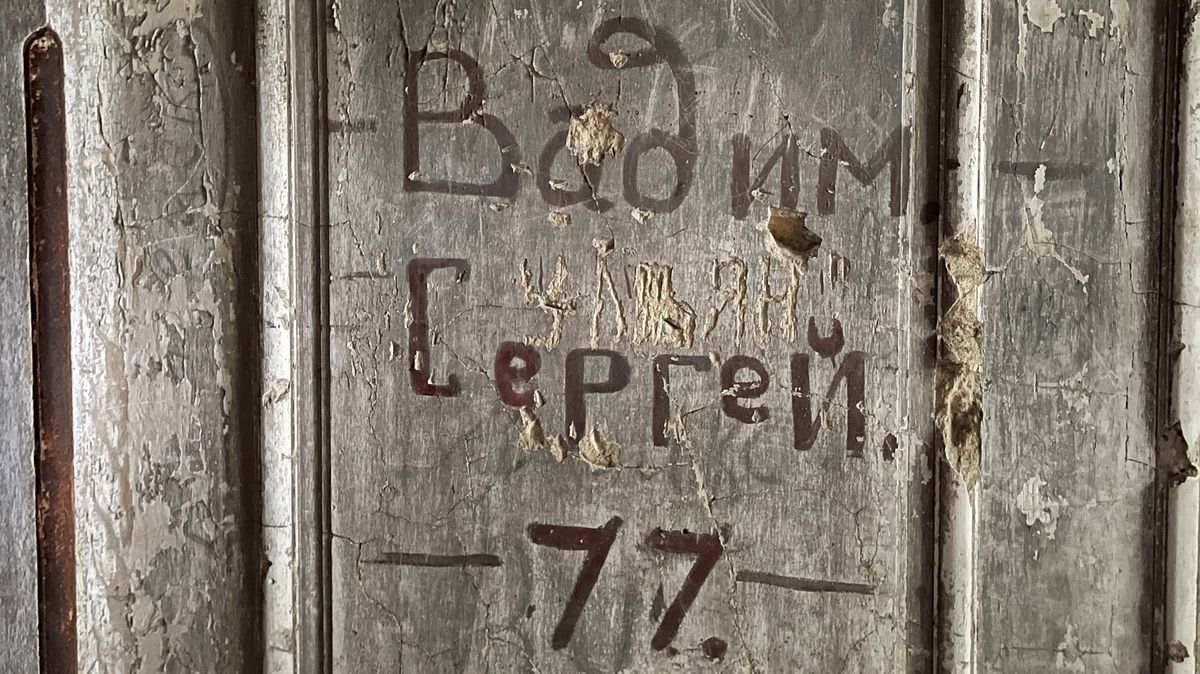 - Вадим. -
"Ульян"
Сергей.
- 77. -